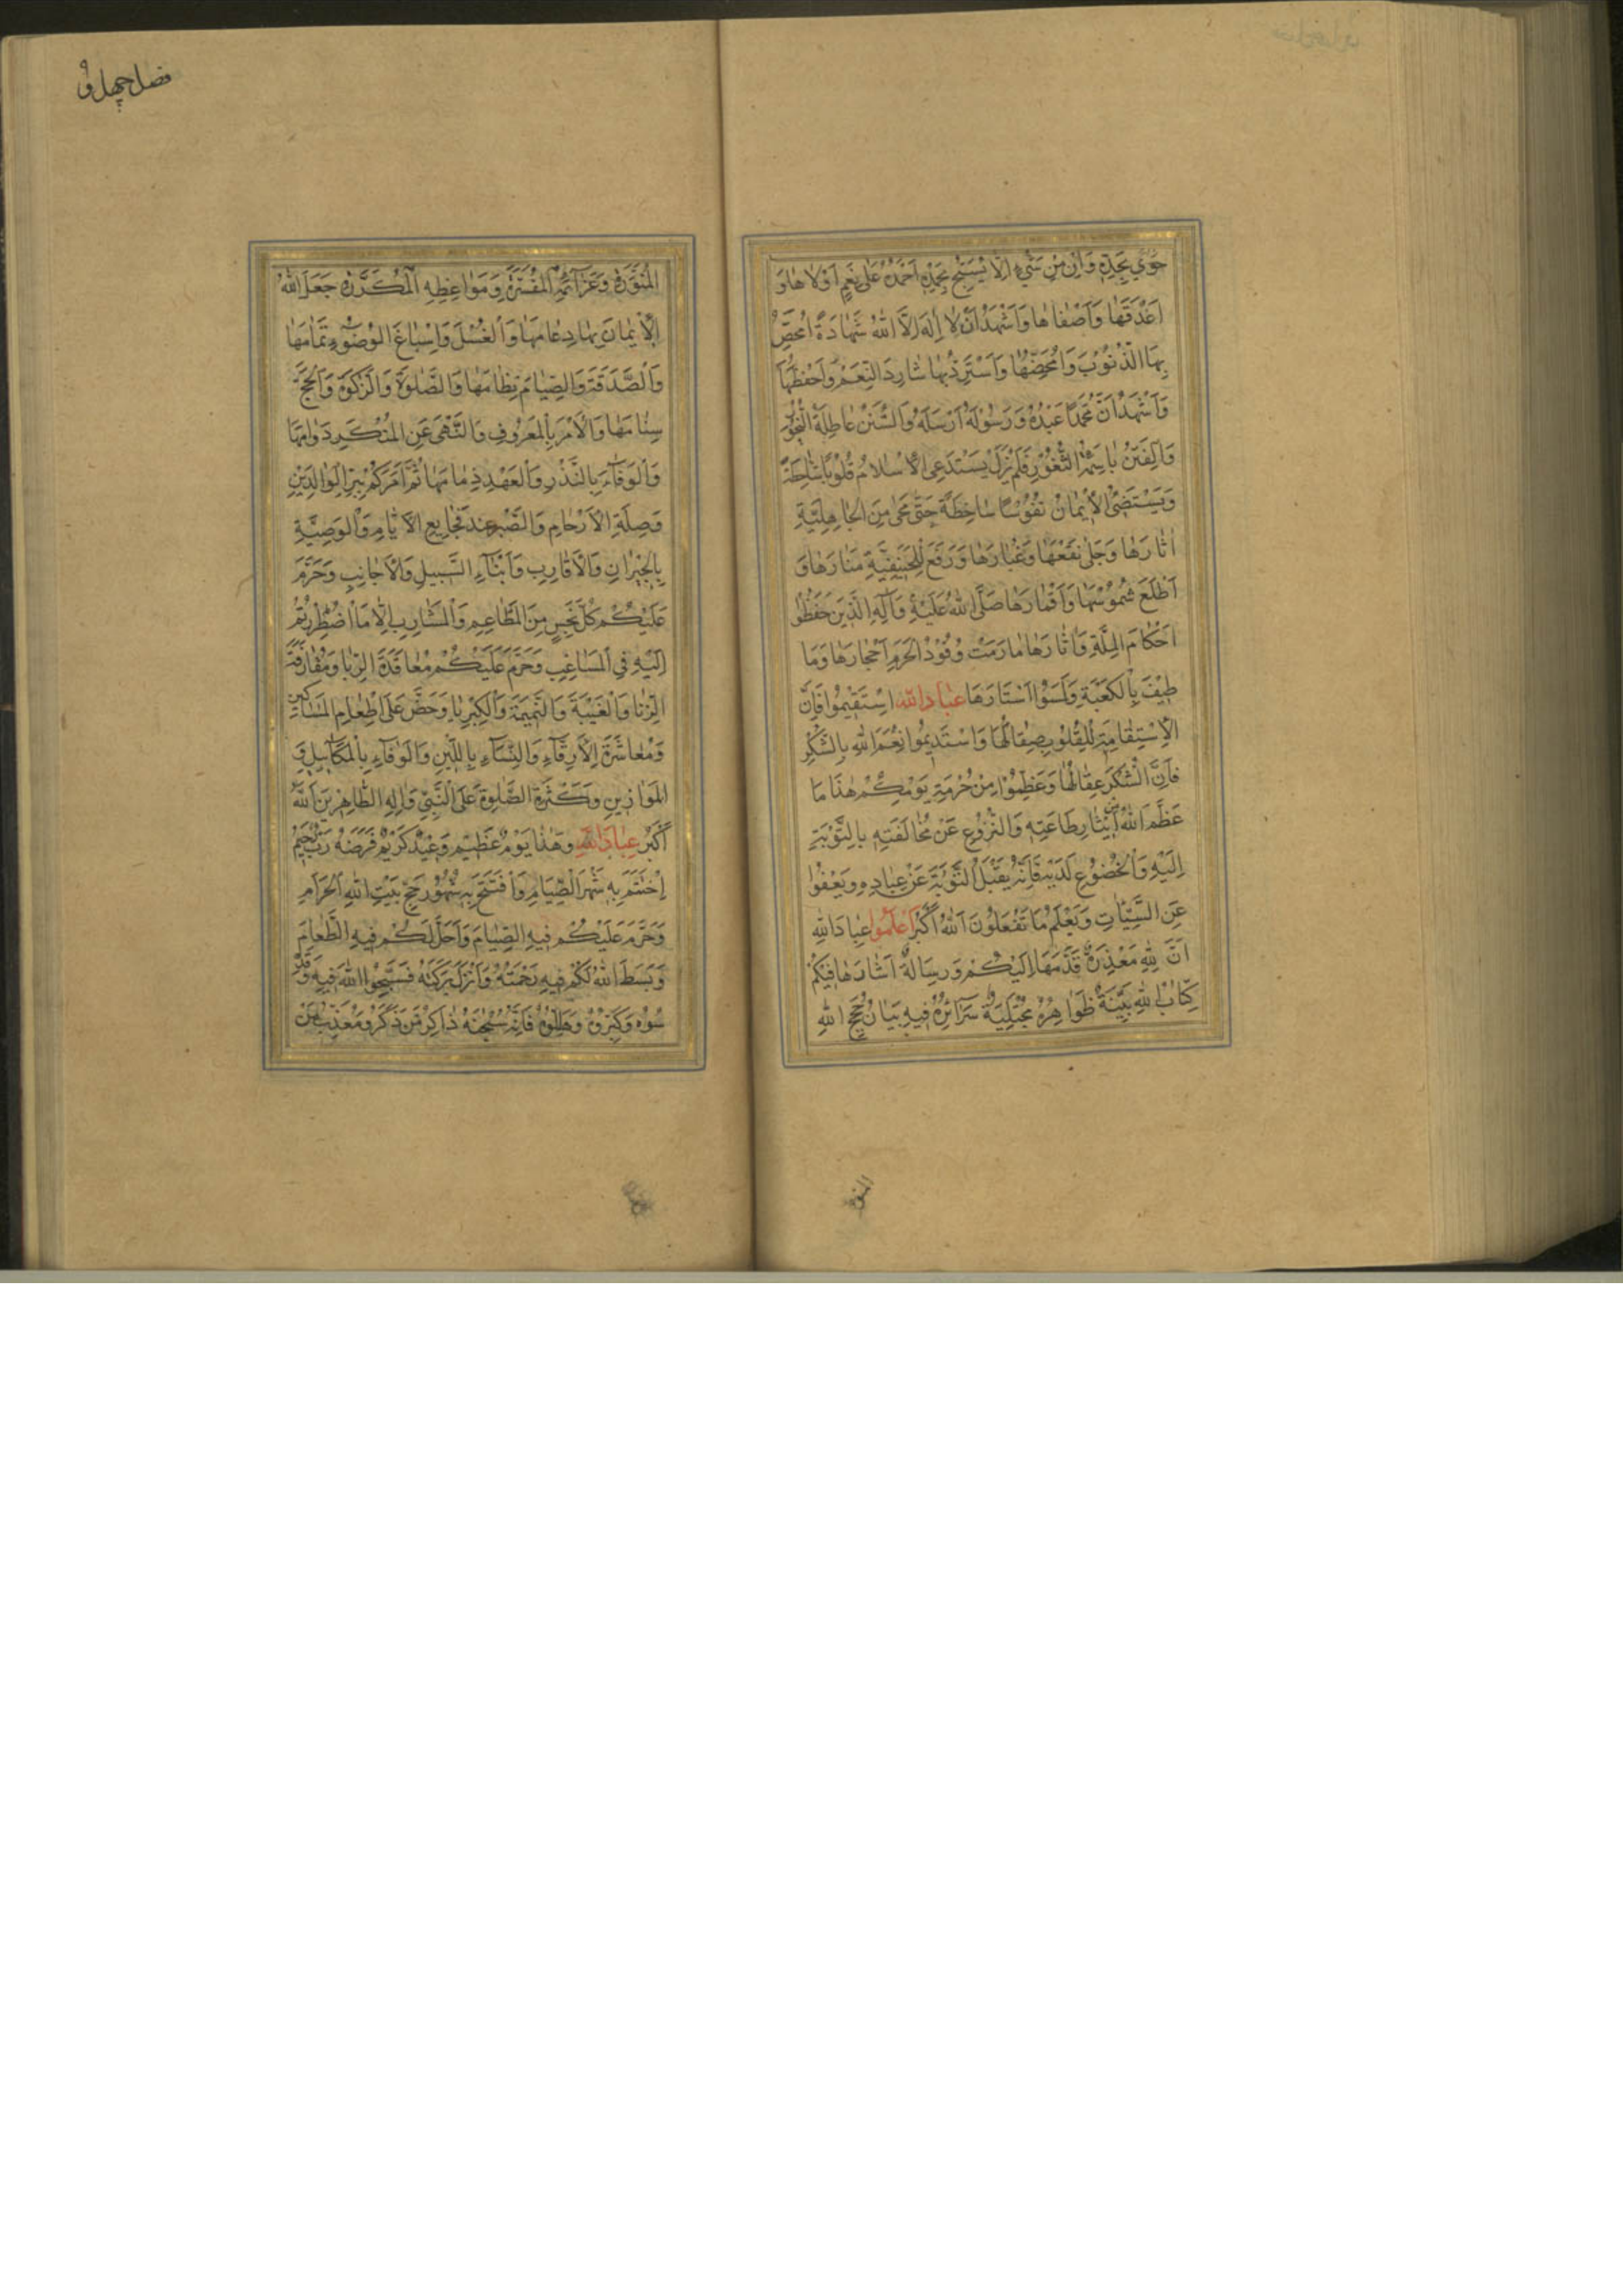 فصل چهل و
حوي بمجده وَاِنْ مِنْ شَيْءٍ اِلَّا يُسَبِّحُ بِحَمْدِهِ اَحْمَدُهُ عَلٰى نِعَمٍ اَوْلَاهَا وَ
اَغْدَقَهَا وَاَصْفَاهَا وَاَشْهَدُ اَنْ لَا اِلٰهَ اِلَّا اللّٰهُ شَهَادَةً اُمَحِّصُ
بِهَا الذُّنُوبَ وَاُمَحِّضُهَا وَاَسْتَرِدُّ بِهَا شَارِدَ النِّعَمِ وَاَحْفَظُهَا
وَاَشْهَدُ اَنَّ مُحَمَّدًا عَبْدُهُ وَرَسُولُهُ اَرْسَلَهُ وَالسُّنَنُ عَاطِلَةُ النُّحُورِ
وَالْفِتَنُ بَاسِمَةُ الثُّغُورِ فَلَمْ يَزَلْ يَسْتَدْعِي الْاِسْلَامُ قُلُوبًا
وَيَسْتَضِئُ الْاِيمَانُ نُفُوسًا سَاخِطَةً حَتّٰى مَحٰى مِنَ الْجَاهِلِيَّةِ
اٰثَارَهَا وَجَلٰى نَقْعَهَا وَغُبَارَهَا وَرَفَعَ لِلْحَنِيفِيَّةِ مَنَارَهَا وَ
اَطْلَعَ شُمُوسَهَا وَاَقْمَارَهَا صَلَّى اللّٰهُ عَلَيْهِ وَاٰلِهِ الَّذِينَ حَفَظُوا
اَحْكَامَ الْمِلَّةِ وَاٰثَارَهَا مَا رَمَتْ وُفُودُ الْحَرَمِ اَحْجَارَهَا وَمَا
طِيفَ بِالْكَعْبَةِ وَلَمَسُوا اَسْتَارَهَا عِبَادَ اللّٰهِ اسْتَقِيمُوا فَاِنَّ
الْاِسْتِقَامَةَ لِلْقُلُوبِ صِقَالُهَا وَاسْتَدِيمُوا نِعَمَ اللّٰهِ بِالشُّكْرِ
فَاِنَّ الشُّكْرَ عِقَالُهَا وَعَظِّمُوا مِنْ حُرْمَةِ يَوْمِكُمْ هٰذَا مَا
عَظَّمَ اللّٰهُ اِيثَارِ طَاعَتِهِ وَالنُّزُوعِ عَنْ مُخَالَفَتِهِ بِالتَّوْبَةِ
اِلَيْهِ وَالْخُضُوعِ لَدَيْهِ فَاِنَّهُ يَقْبَلُ التَّوْبَةَ عَنْ عِبَادِهِ وَيَعْفُوا
عَنِ السَّيِّئَاتِ وَيَعْلَمُ مَا تَفْعَلُونَ اَللّٰهُ اَكْبَرُ اِعْلَمُوا عِبَادَ اللّٰهِ
اَنَّ لِلّٰهِ مَعْذِرَةً قَدَّمَهَا اِلَيْكُمْ وَرِسَالَةً اَشَادَهَا فِيكُمْ
كِتَابُ اللّٰهِ بَيِّنَةٌ ظَوَاهِرُهُ مُجْتَلِيَةٌ سَرَائِرُهُ فِيهِ بَيَانُ حُجَجِ اللّٰهِ
المنو
الْمُنَوَّرَةِ وَعَزَائِمِهِ الْمُفَسَّرَةِ وَمَوَاعِظِهِ الْمُكَرَّرَةِ جَعَلَ اللّٰهُ
الْاِيمَانَ بِهَا دِعَامَهَا وَالْغُسْلَ وَاِسْبَاغَ الْوُضُوءِ تَمَامَهَا
وَالصَّدَقَةَ وَالصِّيَامَ نِظَامَهَا وَالصَّلٰوةَ وَالزَّكٰوةَ وَالْحَجَّ
سَنَامَهَا وَالْاَمْرَ بِالْمَعْرُوفِ وَالنَّهْىَ عَنِ الْمُنْكَرِ دَوَامَهَا
وَالْوَفَاءَ بِالنَّذْرِ وَالْعَهْدِ ذِمَامَهَا ثُمَّ اَمَرَكُمْ بِبِرِّ الْوَالِدَيْنِ
وَصِلَةِ الْاَرْحَامِ وَالصَّبْرِ عِنْدَ فَجَايِعِ الْاَيَّامِ وَالْوَصِيَّةِ
بِالْجِيْرَانِ وَالْاَقَارِبِ وَاَبْنَاءِ السَّبِيلِ وَالْاَجَانِبِ وَحَرَّمَ
عَلَيْكُمْ كُلَّ نَجِسٍ مِنَ الْمَطَاعِمِ وَالْمَشَارِبِ اِلَّا مَا اضْطُرِرْتُمْ
اِلَيْهِ فِي الْمَسَاغِبِ وَحَرَّمَ عَلَيْكُمْ مُعَاقَدَةَ الرِّبَا وَمُقَارَفَةَ
الزِّنَا وَالْغَيْبَةَ وَالنَّمِيمَةَ وَالْكِبْرِيَاءَ وَحَضَّ عَلٰى اِطْعَامِ الْمَسَاكِينِ
وَمُعَاشَرَةِ الْاَرِقَّاءِ وَالنِّسَاءِ بِاللِّينِ وَالْوَفَاءِ بِالْمَكَائِيلِ وَ
الْمَوَازِينِ وَكَثْرَةِ الصَّلٰوةِ عَلَى النَّبِيِّ وَاٰلِهِ الطَّاهِرِينَ اَللّٰهُ
اَكْبَرُ عِبَادَ اللّٰهِ وَهٰذَا يَوْمٌ عَظِيمٌ وَعِيدٌ كَرِيمٌ فَرَضَهُ رَبٌّ رَحِيمٌ
اِخْتَتَمَ بِهِ شَهْرَ الصِّيَامِ وَافْتَتَحَ بِهِ شُهُورَ حَجِّ بَيْتِ اللّٰهِ الْحَرَامِ
وَحَرَّمَ عَلَيْكُمْ فِيهِ الصِّيَامَ وَاَحَلَّ لَكُمْ فِيهِ الطَّعَامَ
وَبَسَطَ اللّٰهُ لَكُمْ فِيهِ رَحْمَتَهُ وَاَنْزَلَ بَرَكَتَهُ فَسَبِّحُوا اللّٰهَ فِيهِ وَقَدِّ
سُوهُ وَكَبِّرُوهُ وَهَلِّلُوهُ فَاِنَّهُ سُبْحَانَهُ ذَاكِرُ مَنْ ذَكَرَهُ وَمُعَذِّبُ مَنْ